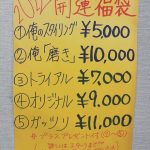 開運福袋
①俺のスタイリング ¥5,000
②俺「磨き」 ¥10,000
③トライアル ¥7,000
④オリジナル ¥9,000
⑤ガッツリ ¥11,000